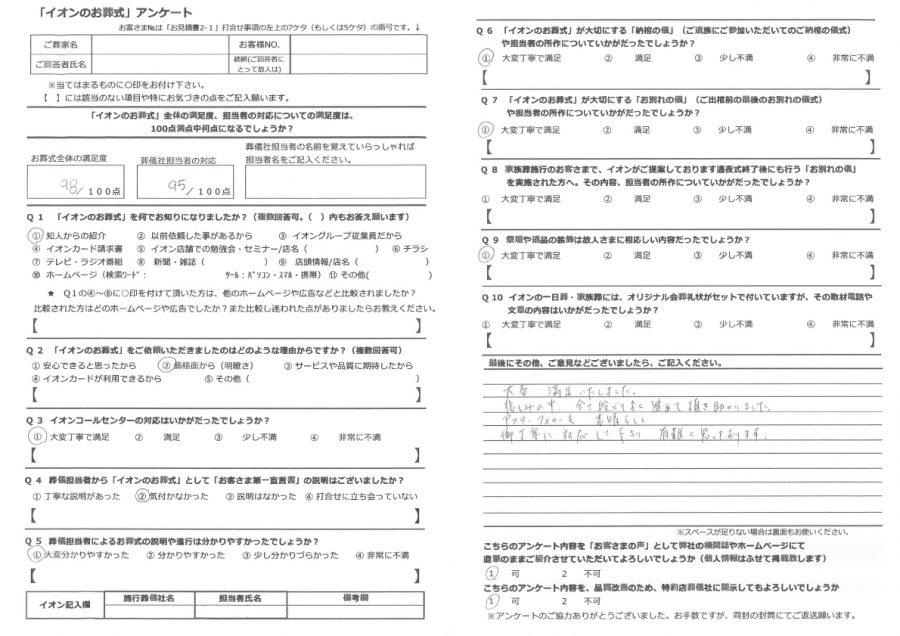 「イオンのお葬式」アンケート
お客さま№は「お見積書2-1」打合せ事項の左上の7ケタ（もしくは5ケタ）の番号です。↓
ご葬家名
お客様NO.
ご回答者氏名
続柄(ご回答者にとって故人は)
※当てはまるものに〇印をお付け下さい。
【　】には該当のない項目や特にお気づきの点をご記入願います。
「イオンのお葬式」全体の満足度、担当者の対応についての満足度は、
100点満点中何点になるでしょうか？
お葬式全体の満足度
葬儀社担当者の対応
葬儀社担当者の名前を覚えていらっしゃれば
担当者名をご記入ください。
98/100点
95/100点
Q 1　「イオンのお葬式」を何でお知りになりましたか？（複数回答可。（　）内もお答え願います）
① 知人からの紹介　② 以前依頼した事があるから　③ イオングループ従業員だから
④ イオンカード請求書　⑤ イオン店舗での勉強会・セミナー/店名（　）　⑥ チラシ
⑦ テレビ・ラジオ番組　⑧ 新聞・雑誌（　）　⑨ 店頭情報/店名（　）
⑩ ホームページ（検索ﾜｰﾄﾞ：　ﾂｰﾙ：ﾊﾟｿｺﾝ・ｽﾏﾎ・携帯）　⑪ その他(　)
★　Q1の④～⑧に〇印を付けて頂いた方は、他のホームページや広告などと比較されましたか？
比較された方はどのホームページや広告でしたか？また比較し迷われた点がありましたらお教えください。
【　】
Q 2　「イオンのお葬式」をご依頼いただきましたのはどのような理由からですか？（複数回答可）
① 安心できると思ったから　② 価格面から（明確さ）　③ サービスや品質に期待したから
④ イオンカードが利用できるから　⑤ その他（　）
【　】
Q 3　イオンコールセンターの対応はいかがだったでしょうか？
① 大変丁寧で満足　② 満足　③ 少し不満　④ 非常に不満
【　】
Q 4　葬儀担当者から「イオンのお葬式」として「お客さま第一宣言書」の説明はございましたか？
① 丁寧な説明があった　② 気付かなかった　③ 説明はなかった　④ 打合せに立ち会っていない
【　】
Q 5　葬儀担当者によるお葬式の説明や進行は分かりやすかったでしょうか？
① 大変分かりやすかった　② 分かりやすかった　③ 少し分かりづらかった　④ 非常に不満
【　】
イオン記入欄
施行葬儀社名
担当者氏名
備考欄
Q 6　「イオンのお葬式」が大切にする「納棺の儀」（ご遺族にご参加いただいてのご納棺の儀式）
や担当者の所作についていかがだったでしょうか？
① 大変丁寧で満足　② 満足　③ 少し不満　④ 非常に不満
【　】
Q 7　「イオンのお葬式」が大切にする「お別れの儀」（ご出棺前の最後のお別れの儀式）
や担当者の所作についていかがだったでしょうか？
① 大変丁寧で満足　② 満足　③ 少し不満　④ 非常に不満
【　】
Q 8　家族葬施行のお客さまで、イオンがご提案しております通夜式終了後にも行う「お別れの儀」
を実施された方へ。その内容、担当者の所作についていかがだったでしょうか？
① 大変丁寧で満足　② 満足　③ 少し不満　④ 非常に不満
【　】
Q 9　祭壇や遺品の装飾は故人さまに相応しい内容だったでしょうか？
① 大変丁寧で満足　② 満足　③ 少し不満　④ 非常に不満
【　】
Q 10　イオンの一日葬・家族葬には、オリジナル会葬礼状がセットで付いていますが、その取材電話や
文章の内容はいかがだったでしょうか？
① 大変丁寧で満足　② 満足　③ 少し不満　④ 非常に不満
【　】
最後にその他、ご意見などございましたら、ご記入ください。
大変　満足いたしました。
悲しみの中、全て滞りなく進めて頂き助かりました。
アフターフォローも　素晴らしく
御丁寧に対応して下さり　有難く思っております。
※スペースが足りない場合は裏面もお使いください。
こちらのアンケート内容を「お客さまの声」として弊社の機関誌やホームページにて
直筆のままご紹介させていただいてよろしいでしょうか（個人情報はふせて掲載致します）
1　可　2　不可
こちらのアンケート内容を、品質改善のため、特約店葬儀社に開示してもよろしいでしょうか
1　可　2　不可
※アンケートのご協力ありがとうございました。お手数ですが、同封の封筒にてご返送願います。